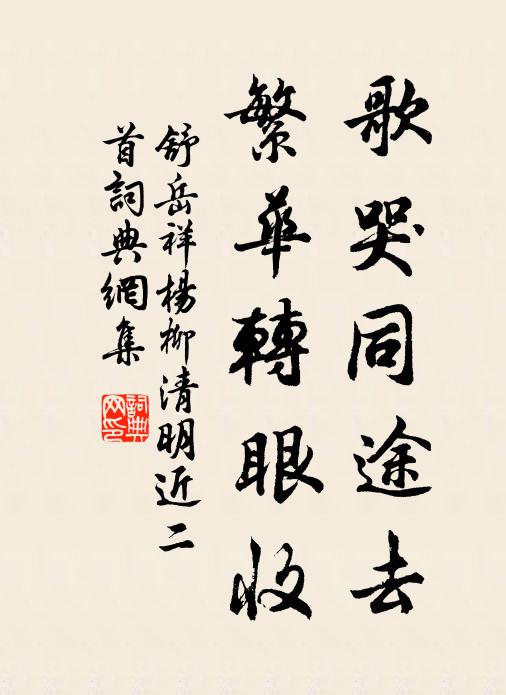 歌哭同途去
繁華轉眼收
舒岳祥楊柳清明近二
首詞典網集
詞典
网印